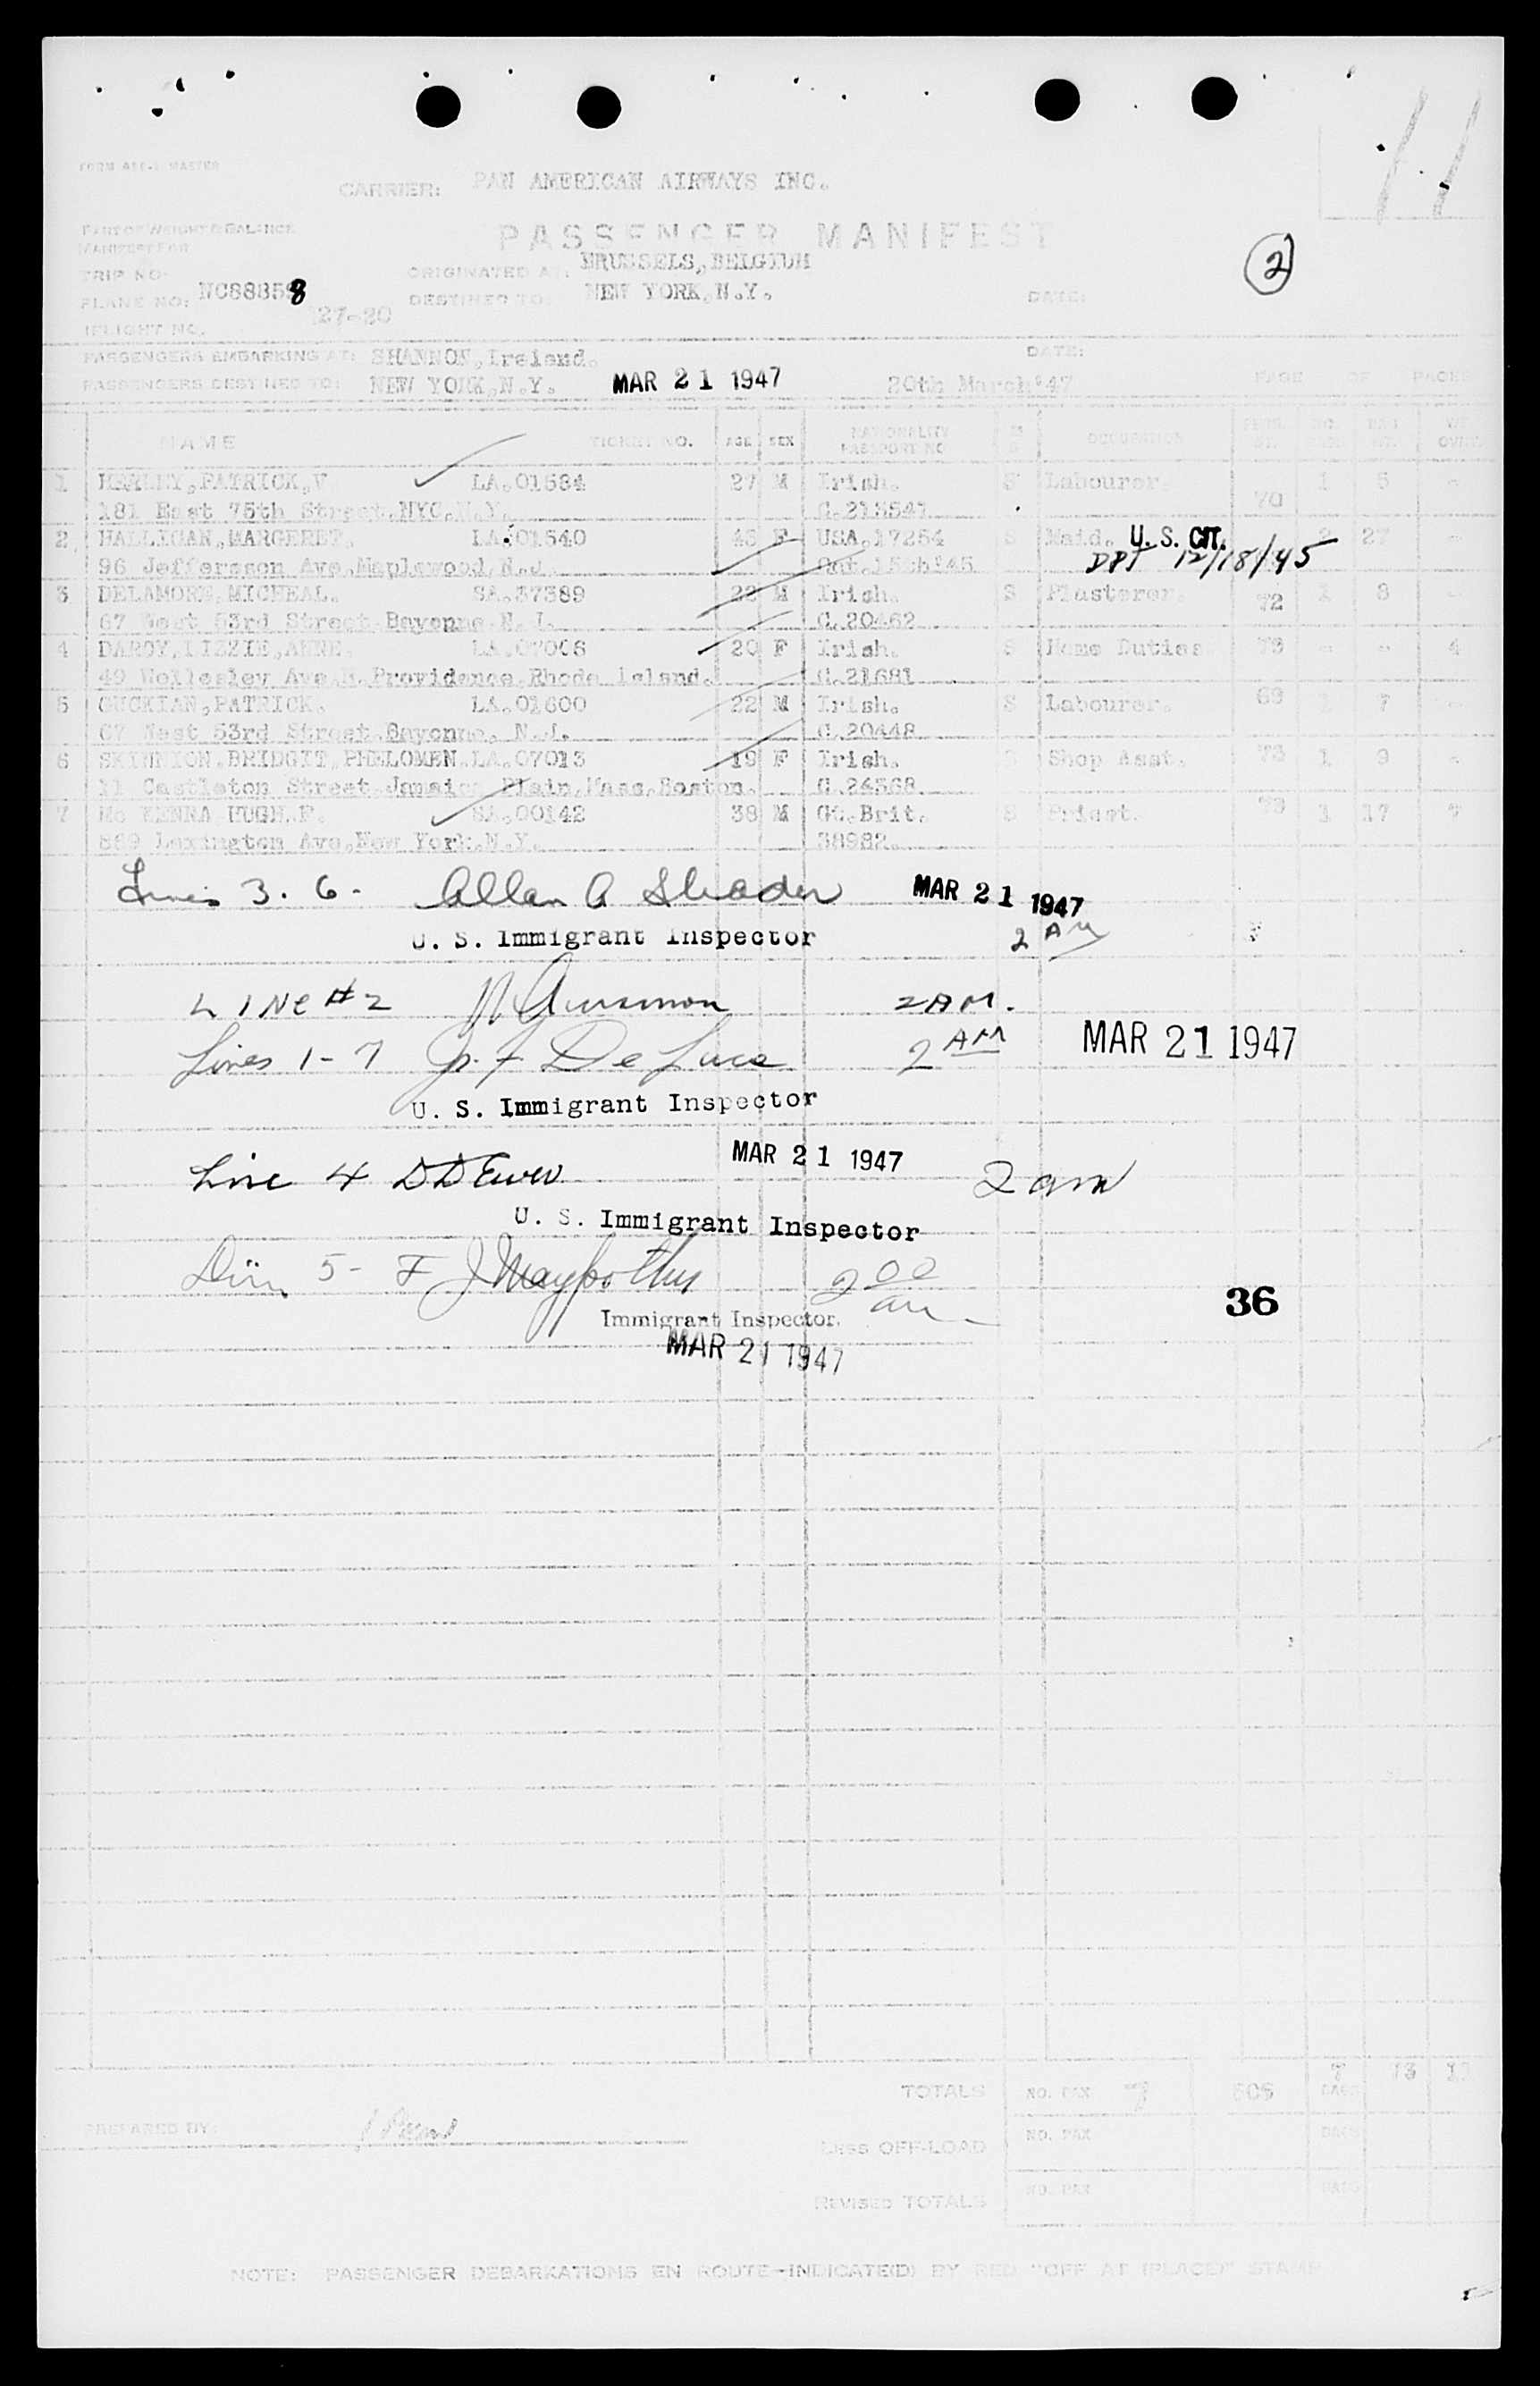 11
CARRIER: PAN AMERICAN AIRWAYS INC.
PART OF WEIGHT & BALANCE
MANIFEST FOR
PASSENGER MANIFEST
2
TRIP NO.
ORIGINATED AT: BRUSSELS, BELGIUM
PLANE NO: NC88858
DESTINED TO: NEW YORK, N.Y.
DATE:
FLIGHT NO. 27-20
PASSENGERS EMBARKING AT: SHANNON, Ireland.
DATE:
PASSENGERS DESTINED TO: NEW YORK, N.Y. MAR 21 1947 20th March'47 PAGE OF PAGES
NAME TICKET NO. AGE SEX NATIONALITY PASSPORT NO OCCUPATION
1 PATRICK, V LA.01534 27 M Irish. S Labourer. 70 1 5 -
181 East 75th Street, NYC, N.Y.
2 HALLIGAN, MARGERET. LA.01540 F USA.17254 S Maid. U. S. CIT. 27 -
96 Jefferson Ave, Maplewood, N.J. DPT 12/18/45
3 DELAMORE, MICHEAL. SA.37389 22 M Irish. S Plasterer. 72 1 8 -
67 West 53rd Street Bayonne N.J. C.20462
4 DARCY, LIZZIE, ANNE. 20 F Irish. S Home Duties 73 - - 4
49 Wellesley Ave, Providence Rhode Island. C.21681
5 GUCKIAN, PATRICK. LA.01600 22 M Irish. S Labourer. 7 -
67 West 53rd Street Bayonne, N.J. C.20448
6 BRIDGIT, PHELOMEN. LA.07013 19 F Irish. Shop Asst. 73 1 9 -
11 Castleton Street Jamaica Plain, Mass, Boston. C.24568
7 Mc KENNA HUGH. P. SA.00142 38 M Gt. Brit. S Priest. 1 17
869 Lexington Ave, New York, N.Y. 38982.
Lines 3. 6- Allan A MAR 21 1947
U. S. Immigrant Inspector 2 AM
LINE #2 2 AM.
Lines 1-7 De Luca 2 AM MAR 21 1947
U. S. Immigrant Inspector
Line 4 MAR 21 1947 2 am
U. S. Immigrant Inspector
5- F J 2 00 am
36
Immigrant Inspector.
MAR 21 1947
TOTALS NO. PAX 7 505 7 73
PREPARED BY:
LESS OFF-LOAD NO. PAX
REVISED TOTALS NO. PAX
NOTE: PASSENGER DEBARKATIONS EN ROUTE—INDICATE(D) BY RED "OFF AT (PLACE)" STAMP